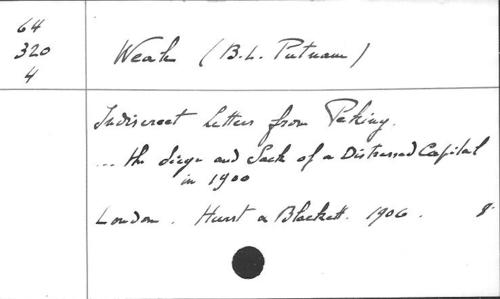 64
320
4
Weale (B.L. Putnam)
Indiscreet Letters from Peking.
... the Siege and Sack of a Distressed Capital
in 1900
London. Hurst & Blackett. 1906. 8°